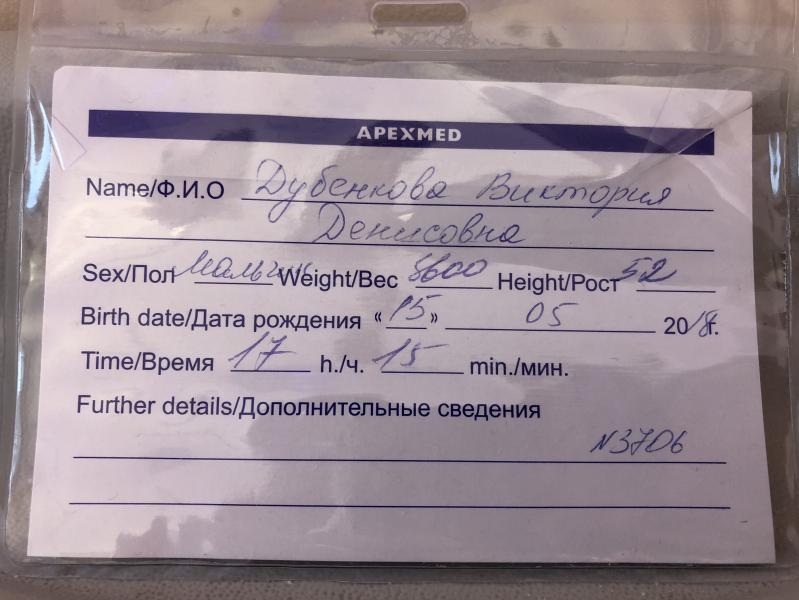 APEXMED
Name/Ф.И.О Дубенкова Виктория
Денисовна
Sex/Пол Мальчик Weight/Вес 3600 Height/Рост 52
Birth date/Дата рождения «15» 05 2018г.
Time/Время 17 h./ч. 15 min./мин.
Further details/Дополнительные сведения
N3706